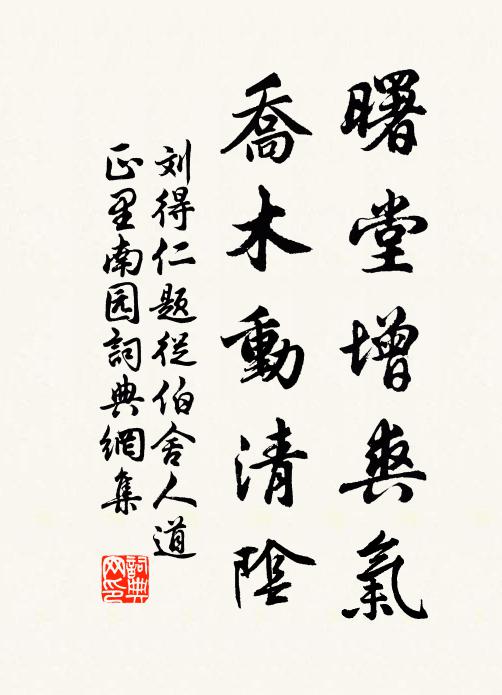 曙堂增爽氣
喬木動清陰
刘得仁题從伯舍人道
正里南园詞典網集
詞典网印